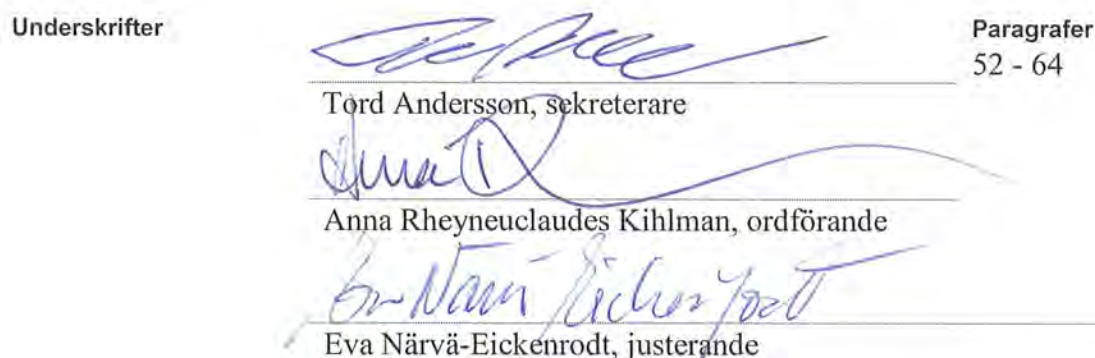 Underskrifter
Paragrafer
52 - 64
Tord Andersson, sekreterare
Anna
Anna Rheyneuclaudes Kihlman, ordförande
Eva Närvä Eickenrodt
Eva Närvä-Eickenrodt, justerande